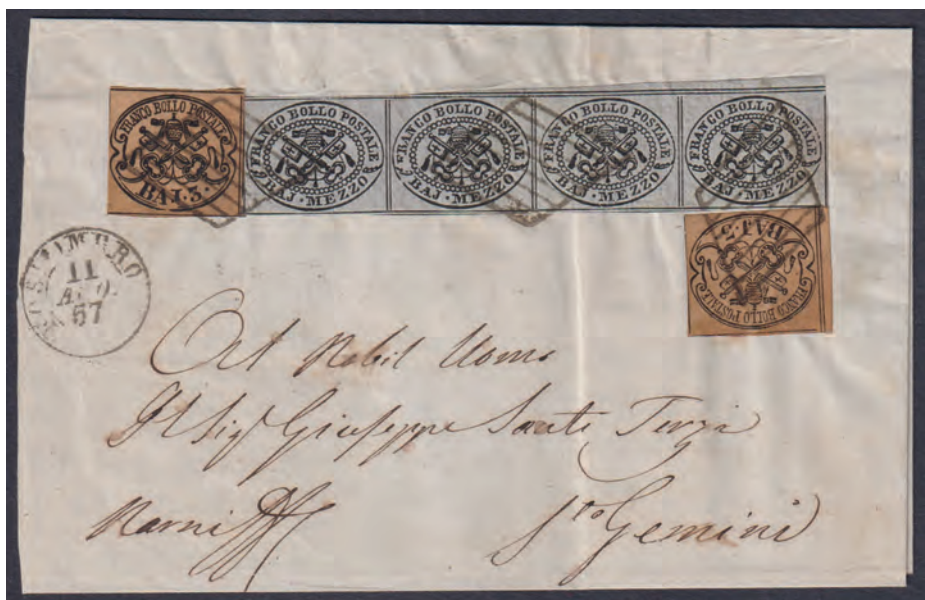 FRANCO BOLLO POSTALE
BAJ·3·
FRANCO BOLLO POSTALE
BAJ·MEZZO
FRANCO BOLLO POSTALE
BAJ·MEZZO
FRANCO BOLLO POSTALE
BAJ·MEZZO
FRANCO BOLLO POSTALE
BAJ·MEZZO
FRANCO BOLLO POSTALE
BAJ·3·
11
57
Al Nobil Uomo
Il Sig Giuseppe Santi Terzi
Narni
Sto Gemini